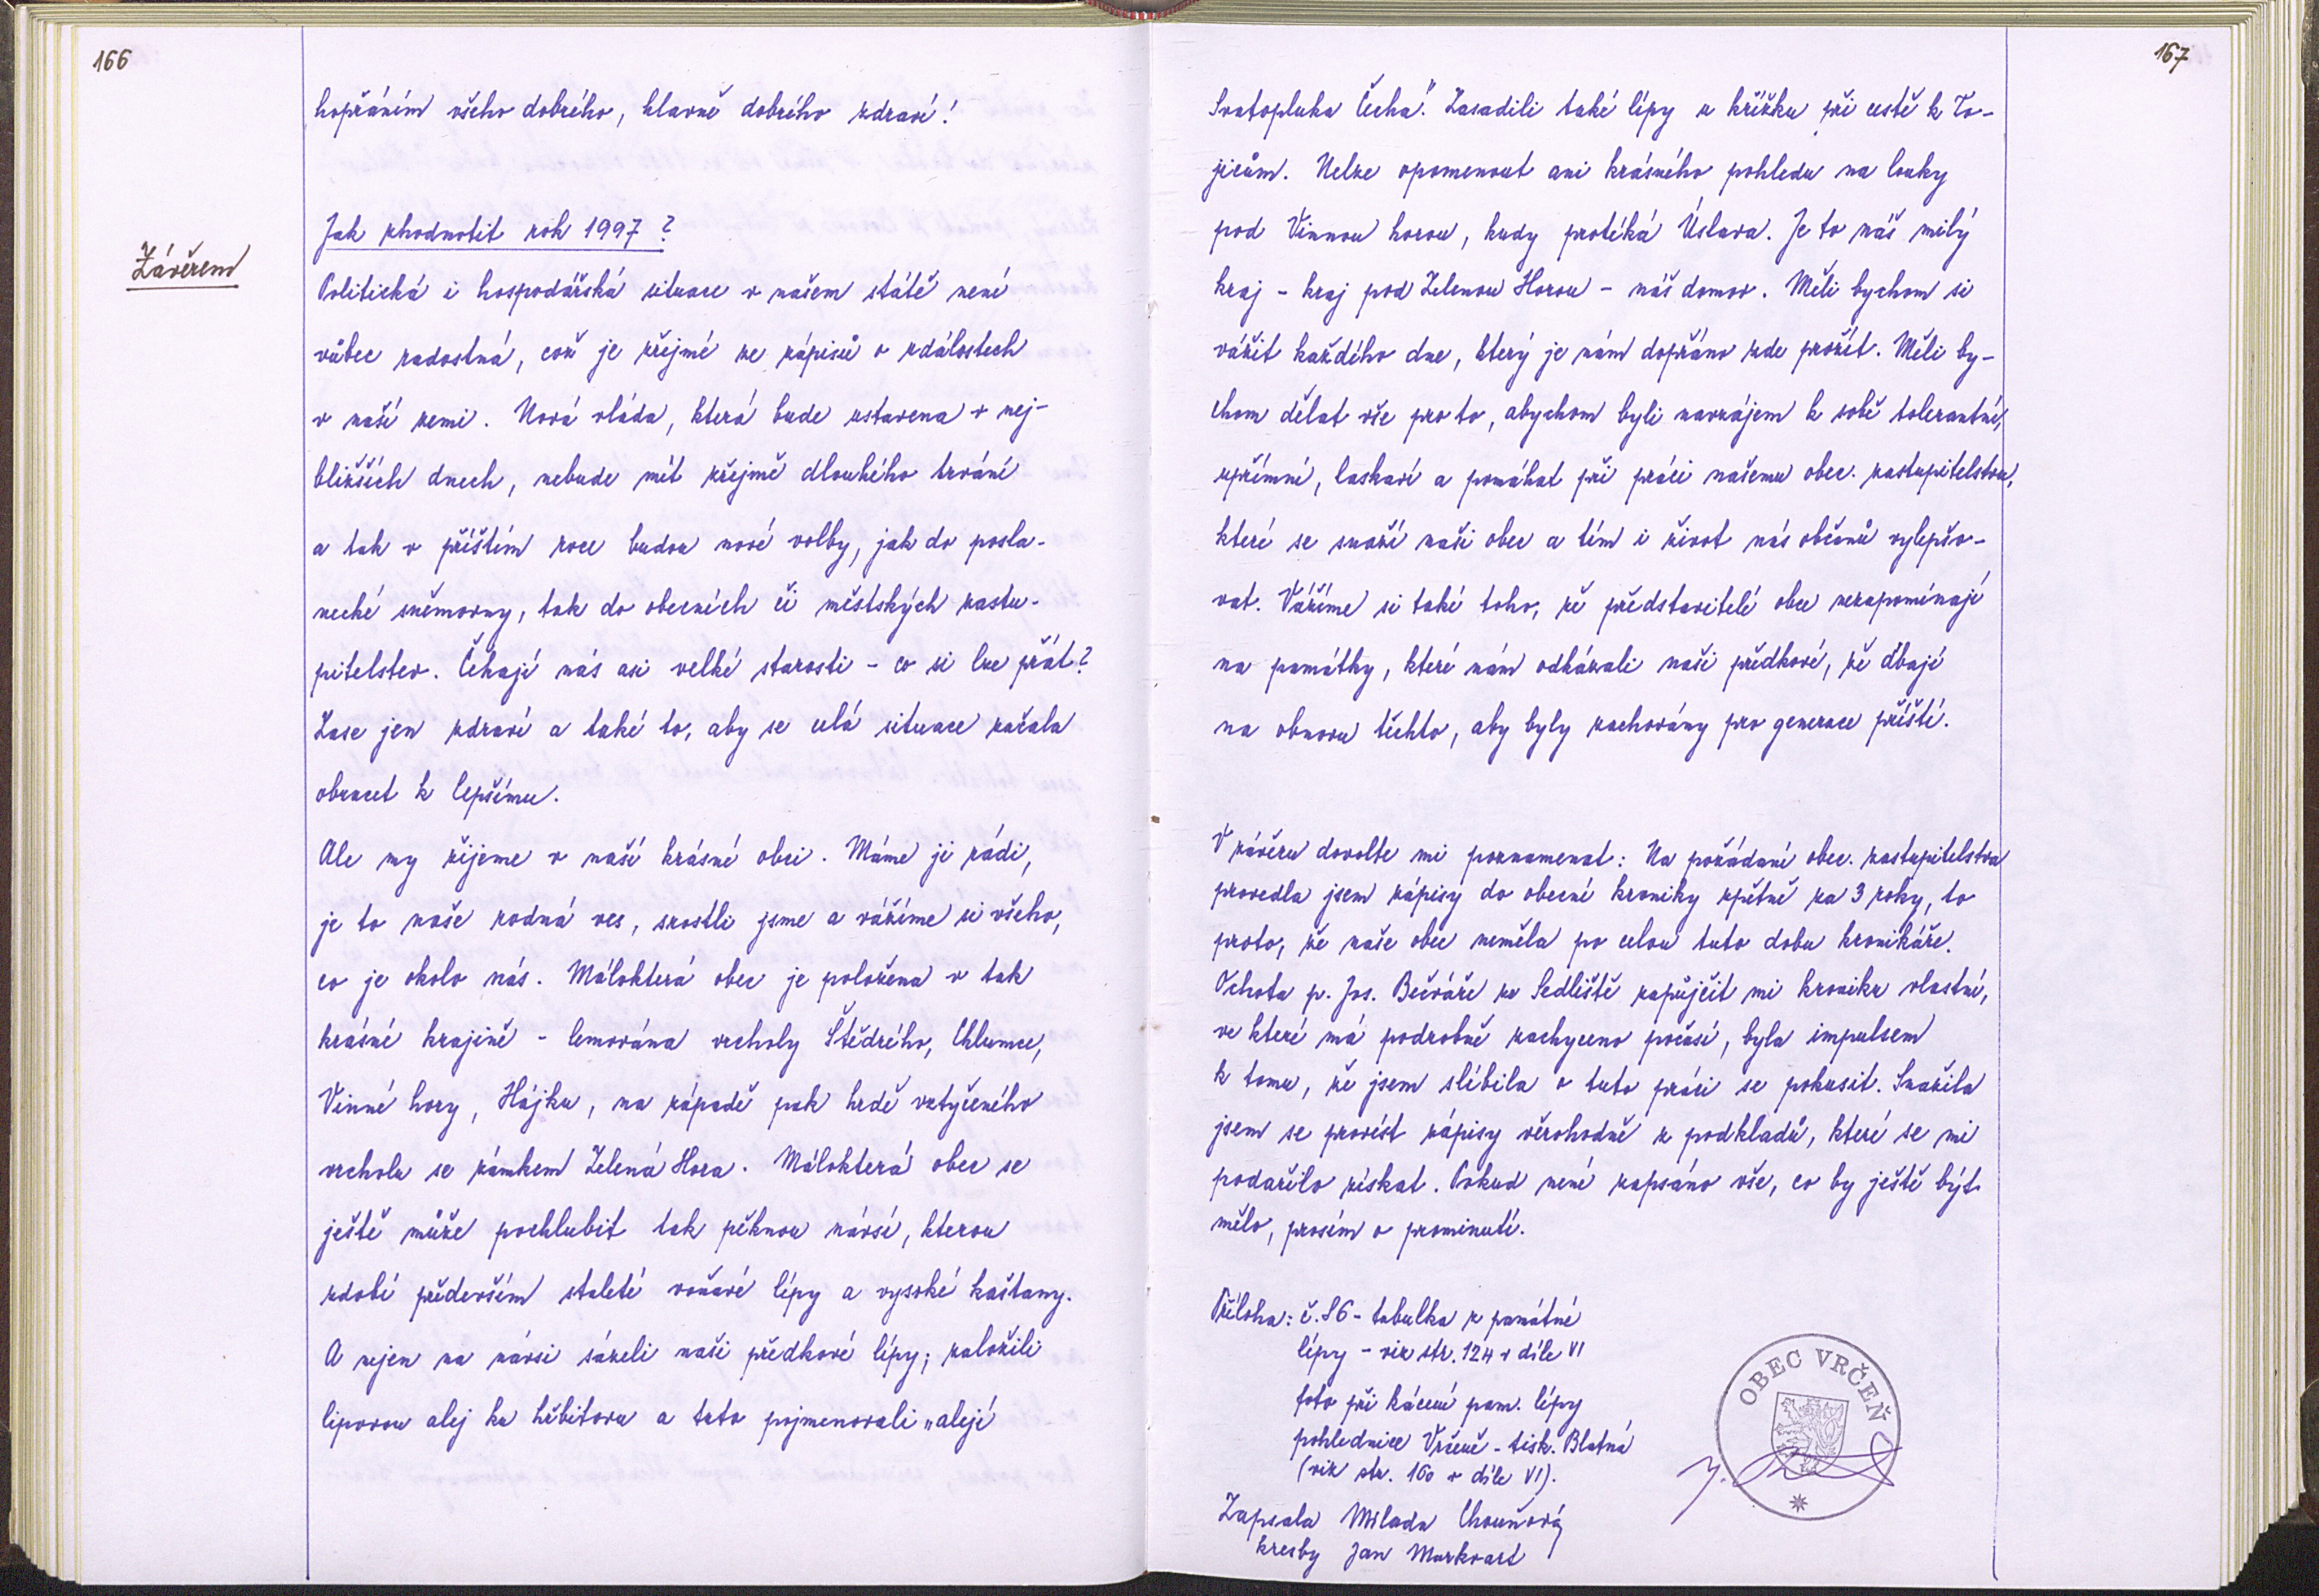 166
hopřáním všeho dobrého, hlavně dobrého zdraví!
Závěrem
Jak zhodnotit rok 1997?
Politická i hospodářská situace v našem státě není
vůbec radostná, což je zřejmé ze zápisů o událostech
v naší zemi. Nová vláda, která bude ustavena v nej-
bližších dnech, nebude mít zřejmě dlouhého trvání
a tak v příštím roce budou nové volby, jak do posla-
necké sněmovny, tak do obecních či městských zastu-
pitelstev. Čekají nás asi velké starosti - co si lze přát?
Zase jen zdraví a také to, aby se celá situace začala
obracet k lepšímu.
Ale my žijeme v naší krásné obci. Máme ji rádi,
je to naše rodná ves, srostli jsme a vážíme si všeho,
co je okolo nás. Málokterá obec je položena v tak
krásné krajině - lemována vrcholy Štědrého, Chlumce,
Vinné hory, Hájku, na západě pak hrdě vztyčeného
vrcholu se zámkem Zelená Hora. Málokterá obec se
ještě může pochlubit tak pěknou návsí, kterou
zdobí především staleté voňavé lípy a vysoké kaštany.
A nejen na návsi sázeli naši předkové lípy; založili
lipovou alej ku hřbitovu a tuto pojmenovali „alejí
167
Svatopluka Čecha". Zasadili také lípy u křížku při cestě k To-
jicům. Nelze opomenout ani krásného pohledu na louky
pod Vinnou horou, kudy protéká Úslava. Je to náš milý
kraj - kraj pod Zelenou Horou - náš domov. Měli bychom si
vážit každého dne, který je nám dopřáno zde prožít. Měli by-
chom dělat vše pro to, abychom byli navzájem k sobě tolerantní,
upřímní, laskaví a pomáhat při práci našemu obec. zastupitelstvu,
které se snaží naši obec a tím i život nás občanů vylepšo-
vat. Vážíme si také toho, že představitelé obce nezapomínají
na památky, které nám odkázali naši předkové, že dbají
na obnovu těchto, aby byly zachovány pro generace příští.
V závěru dovolte mi poznamenat: Na požádání obec. zastupitelstva
provedla jsem zápisy do obecní kroniky zpětně za 3 roky, to
proto, že naše obec neměla po celou tuto dobu kronikáře.
Ochota p. Jos. Bečváře ze Sedliště zapůjčit mi kroniku vlastní,
ve které má podrobně zachyceno počasí, byla impulsem
k tomu, že jsem slíbila o tuto práci se pokusit. Snažila
jsem se provést zápisy věrohodně z podkladů, které se mi
podařilo získat. Pokud není zapsáno vše, co by ještě být
mělo, prosím o prominutí.
Příloha: č. 86 - tabulka z památné
lípy - viz str. 124 v díle VI
foto při kácení pam. lípy
pohlednice Vrčeně - tisk. Blatná
(viz str. 160 v díle VI).
Zapsala Milada Chouňová
kresby Jan Markvart
OBEC VRČEŇ